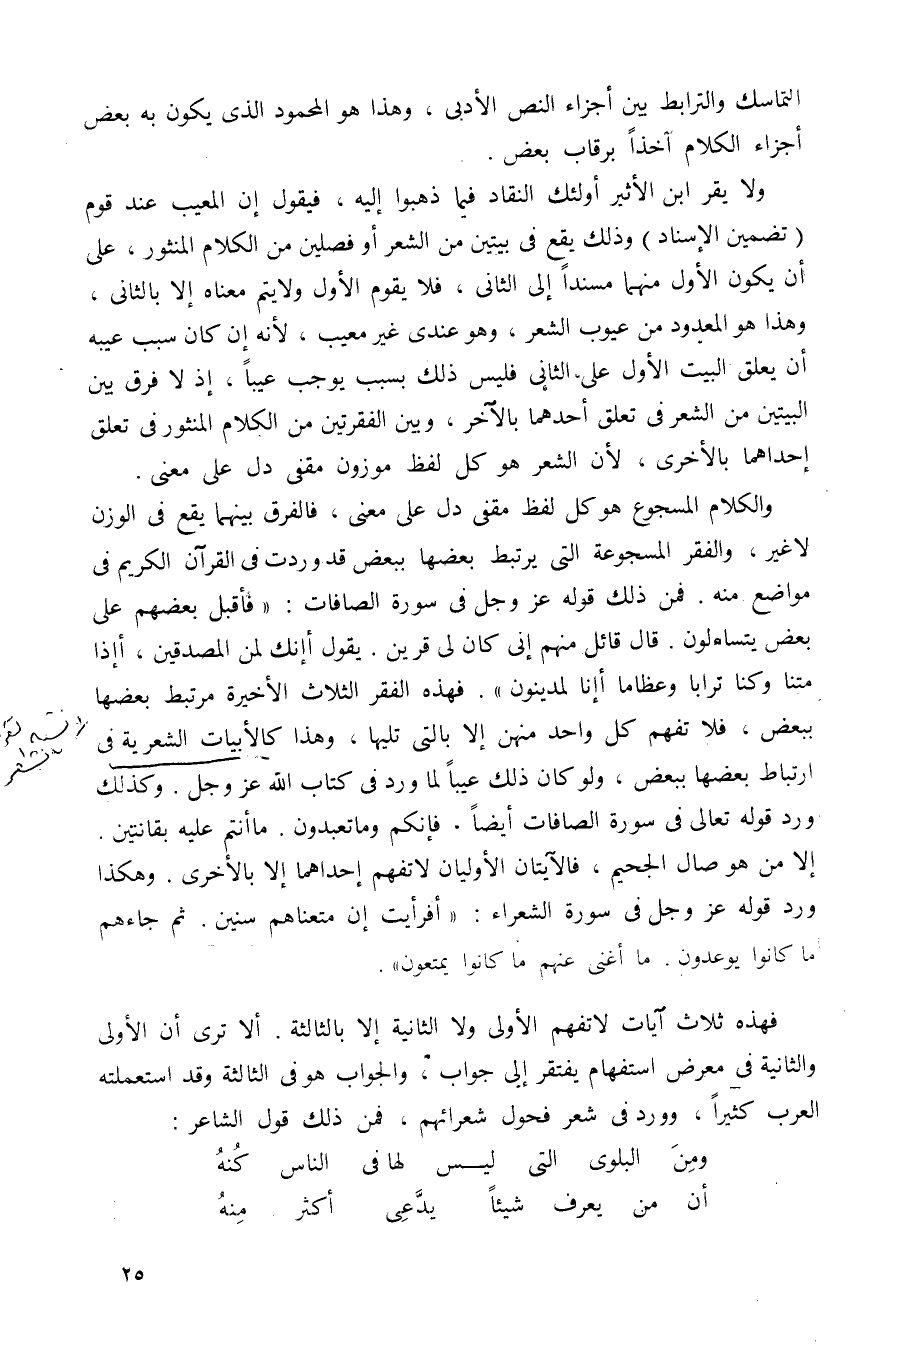 التماسك والترابط بين أجزاء النص الأدبى ، وهذا هو المحمود الذى يكون به بعض
أجزاء الكلام آخذاً برقاب بعض .
ولا يقر ابن الأثير أولئك النقاد فيما ذهبوا إليه ، فيقول إن المعيب عند قوم
( تضمين الإسناد ) وذلك يقع فى بيتين من الشعر أو فصلين من الكلام المنثور ، على
أن يكون الأول منهما مسنداً إلى الثانى ، فلا يقوم الأول ولايتم معناه إلا بالثانى ،
وهذا هو المعدود من عيوب الشعر ، وهو عندى غير معيب ، لأنه إن كان سبب عيبه
أن يعلق البيت الأول على الثانى فليس ذلك بسبب يوجب عيباً ، إذ لا فرق بين
البيتين من الشعر فى تعلق أحدهما بالآخر ، وبين الفقرتين من الكلام المنثور فى تعلق
إحداهما بالأخرى ، لأن الشعر هو كل لفظ موزون مقفى دل على معنى .
والكلام المسجوع هو كل لفظ مقفى دل على معنى ، فالفرق بينهما يقع فى الوزن
لاغير ، والفقر المسجوعة التى يرتبط بعضها ببعض قد وردت فى القرآن الكريم فى
مواضع منه . فمن ذلك قوله عز وجل فى سورة الصافات : « فأقبل بعضهم على
بعض يتساءلون . قال قائل منهم إنى كان لى قرين . يقول أإنك لمن المصدقين ، أإذا
متنا وكنا ترابا وعظاما أإنا لمدينون » . فهذه الفقر الثلاث الأخيرة مرتبط بعضها
ببعض ، فلا تفهم كل واحد منهن إلا بالتى تليها ، وهذا كالأبيات الشعرية فى
ارتباط بعضها ببعض ، ولو كان ذلك عيباً لما ورد فى كتاب الله عز وجل . وكذلك
ورد قوله تعالى فى سورة الصافات أيضاً . فإنكم وماتعبدون . ماأنتم عليه بفاتنين .
إلا من هو صال الجحيم ، فالآيتان الأوليان لاتفهم إحداهما إلا بالأخرى . وهكذا
ورد قوله عز وجل فى سورة الشعراء : « أفرأيت إن متعناهم سنين . ثم جاءهم
ما كانوا يوعدون . ما أغنى عنهم ما كانوا يمتعون» .
فهذه ثلاث آيات لاتفهم الأولى ولا الثانية إلا بالثالثة . ألا ترى أن الأولى
والثانية فى معرض استفهام يفتقر إلى جواب ، والجواب هو فى الثالثة وقد استعملته
العرب كثيراً ، وورد فى شعر فحول شعرائهم ، فمن ذلك قول الشاعر :
ومِنَ البلوى التى ليـــس لها فى الناس كُنهُ
أن من يعرف شيئاً يدَّعِى أكثر مِنهُ
٢٥